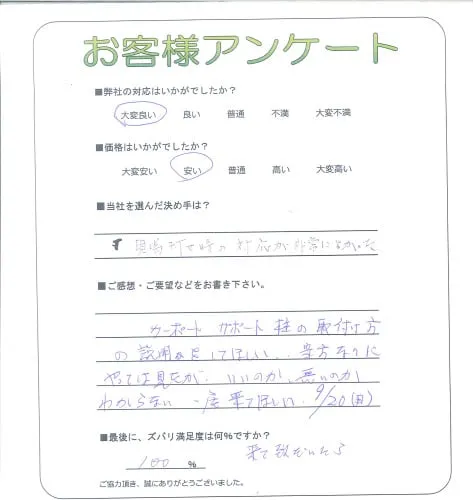 お客様アンケート
■弊社の対応はいかがでしたか？
大変良い 良い 普通 不満 大変不満
■価格はいかがでしたか？
大変安い 安い 普通 高い 大変高い
■当社を選んだ決め手は？
現場打合時の対応が非常によかった
■ご感想・ご要望などをお書き下さい。
カーポート サポート柱の取付け方
の説明をしてほしい、当方なりに
やっては見たが いいのか、悪いのか
わからない 一度来てほしい、9/20(日)
■最後に、ズバリ満足度は何%ですか？
100 %
来て頂いたら
ご協力頂き、誠にありがとうございました。